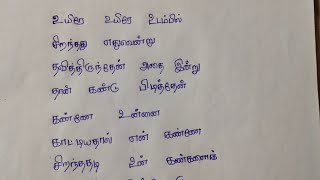 உயிரே உயிரே உடம்பில்
சிறந்தது எதுவென்று
தவித்திருந்தேன் அதை இன்று
தான் கண்டு பிடித்தேன்
கண்ணே உன்னை
காட்டியதால் என் கண்ணே
சிறந்ததடி உன் கண்களைக்